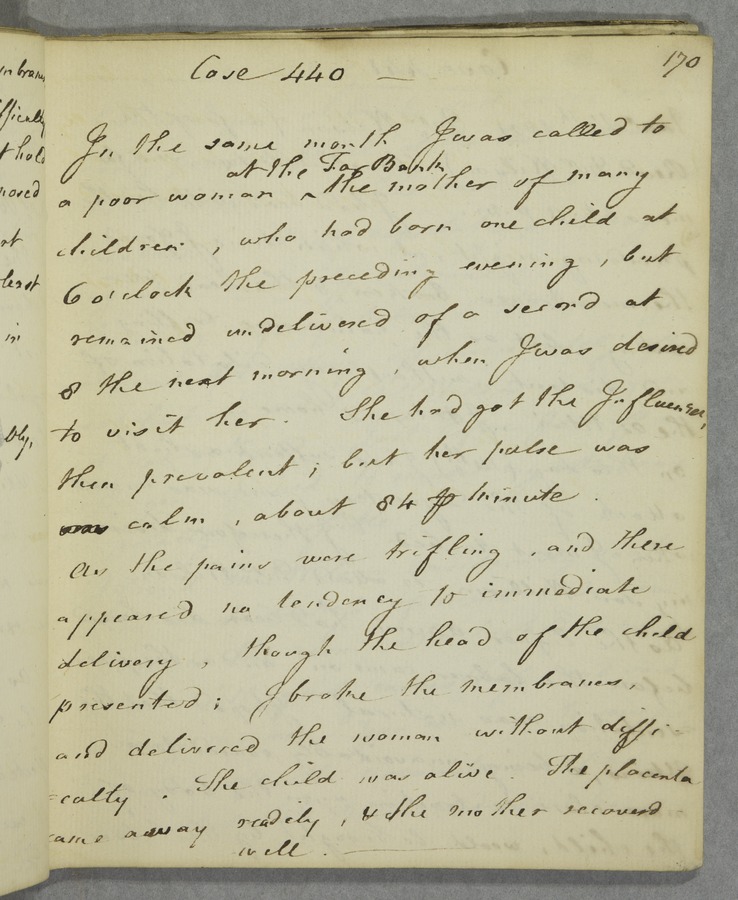 170
Case 440 —
In the same month I was called to
at the Far Bank
a poor woman ^ the mother of many
children, who had born one child at
6 o'clock the preceding evening, but
remained undelivered of a second at
8 the next morning, when I was desired
to visit her. She had got the Influenza,
then prevalent; but her pulse was
calm, about 84 ⅌ minute.
As the pains were trifling, and there
appeared no tendency to immediate
delivery, though the head of the child
presented; I broke the membranes,
and delivered the woman without diffi-
=culty. The child was alive. The placenta
came away readily, & the mother recoverd
well.